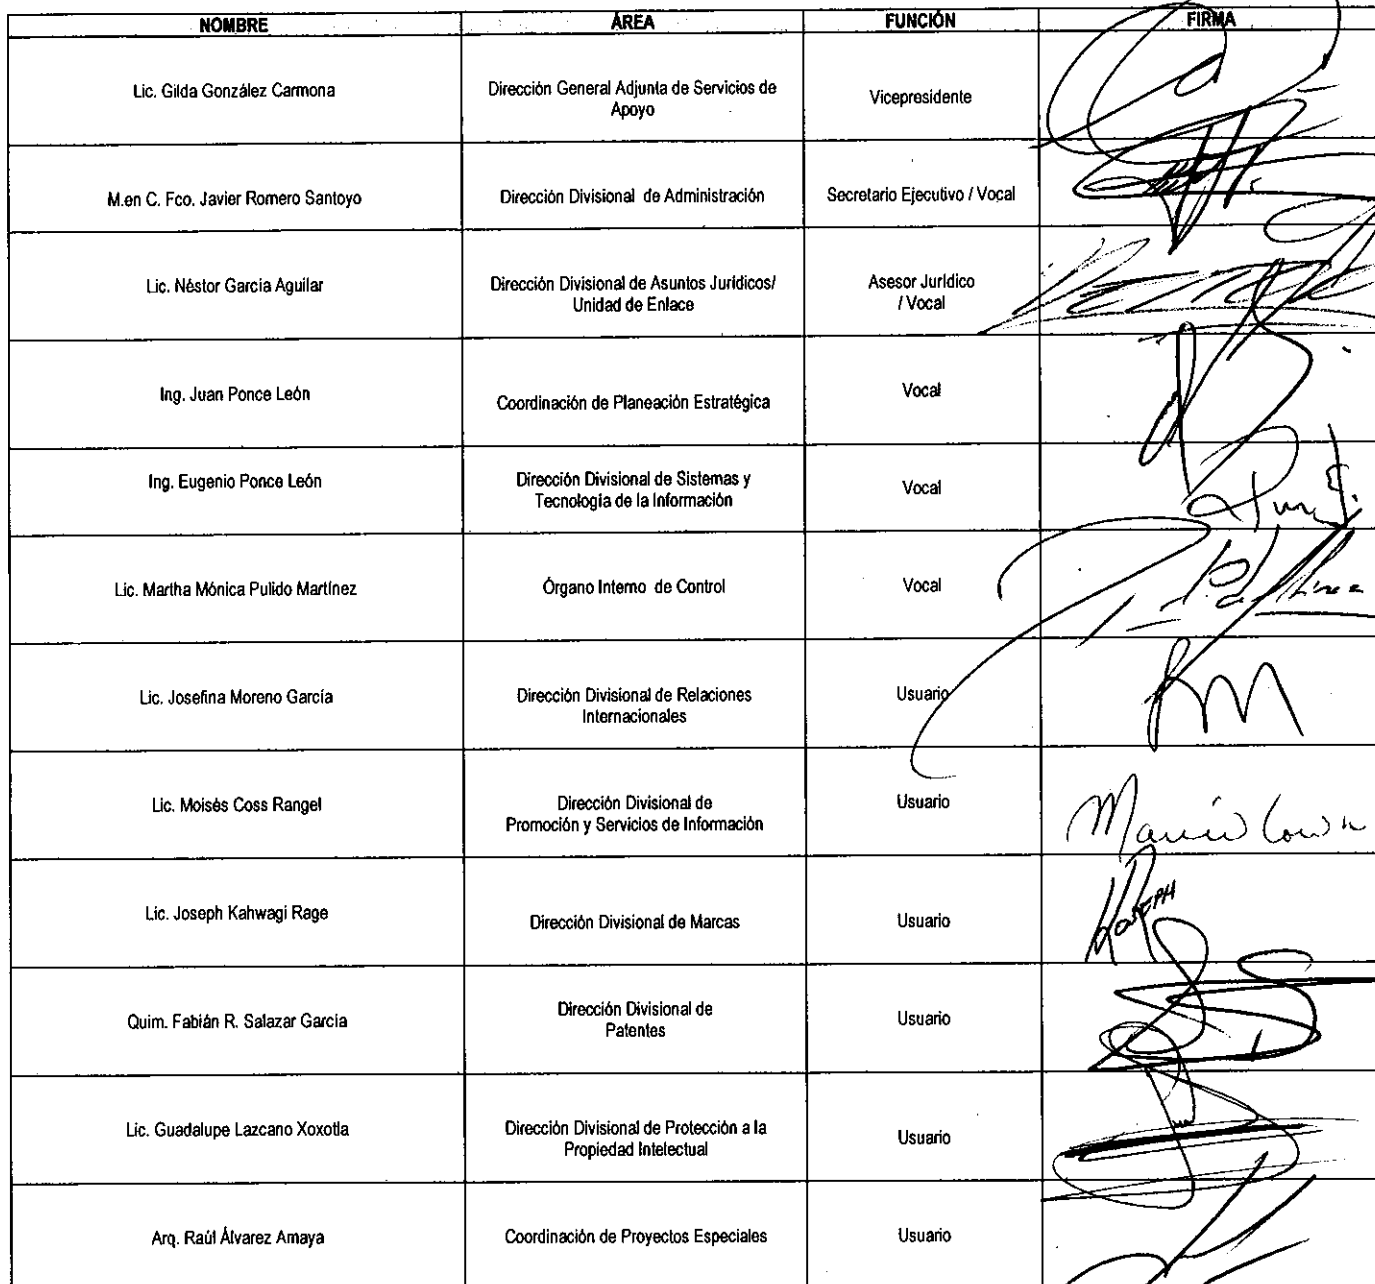 NOMBRE ÁREA FUNCIÓN FIRMA
Lic. Gilda González Carmona
Dirección General Adjunta de Servicios de
Apoyo
Vicepresidente
M.en C. Fco. Javier Romero Santoyo
Dirección Divisional de Administración
Secretario Ejecutivo / Vocal
Lic. Néstor García Aguilar
Dirección Divisional de Asuntos Jurídicos/
Unidad de Enlace
Asesor Jurídico
/ Vocal
Ing. Juan Ponce León
Coordinación de Planeación Estratégica
Vocal
Ing. Eugenio Ponce León
Dirección Divisional de Sistemas y
Tecnología de la Información
Vocal
Lic. Martha Mónica Pulido Martínez
Órgano Interno de Control
Vocal
Lic. Josefina Moreno García
Dirección Divisional de Relaciones
Internacionales
Usuario
Lic. Moisés Coss Rangel
Dirección Divisional de
Promoción y Servicios de Información
Usuario
Lic. Joseph Kahwagi Rage
Dirección Divisional de Marcas
Usuario
Quim. Fabián R. Salazar García
Dirección Divisional de
Patentes
Usuario
Lic. Guadalupe Lazcano Xoxotla
Dirección Divisional de Protección a la
Propiedad Intelectual
Usuario
Arq. Raúl Álvarez Amaya
Coordinación de Proyectos Especiales
Usuario